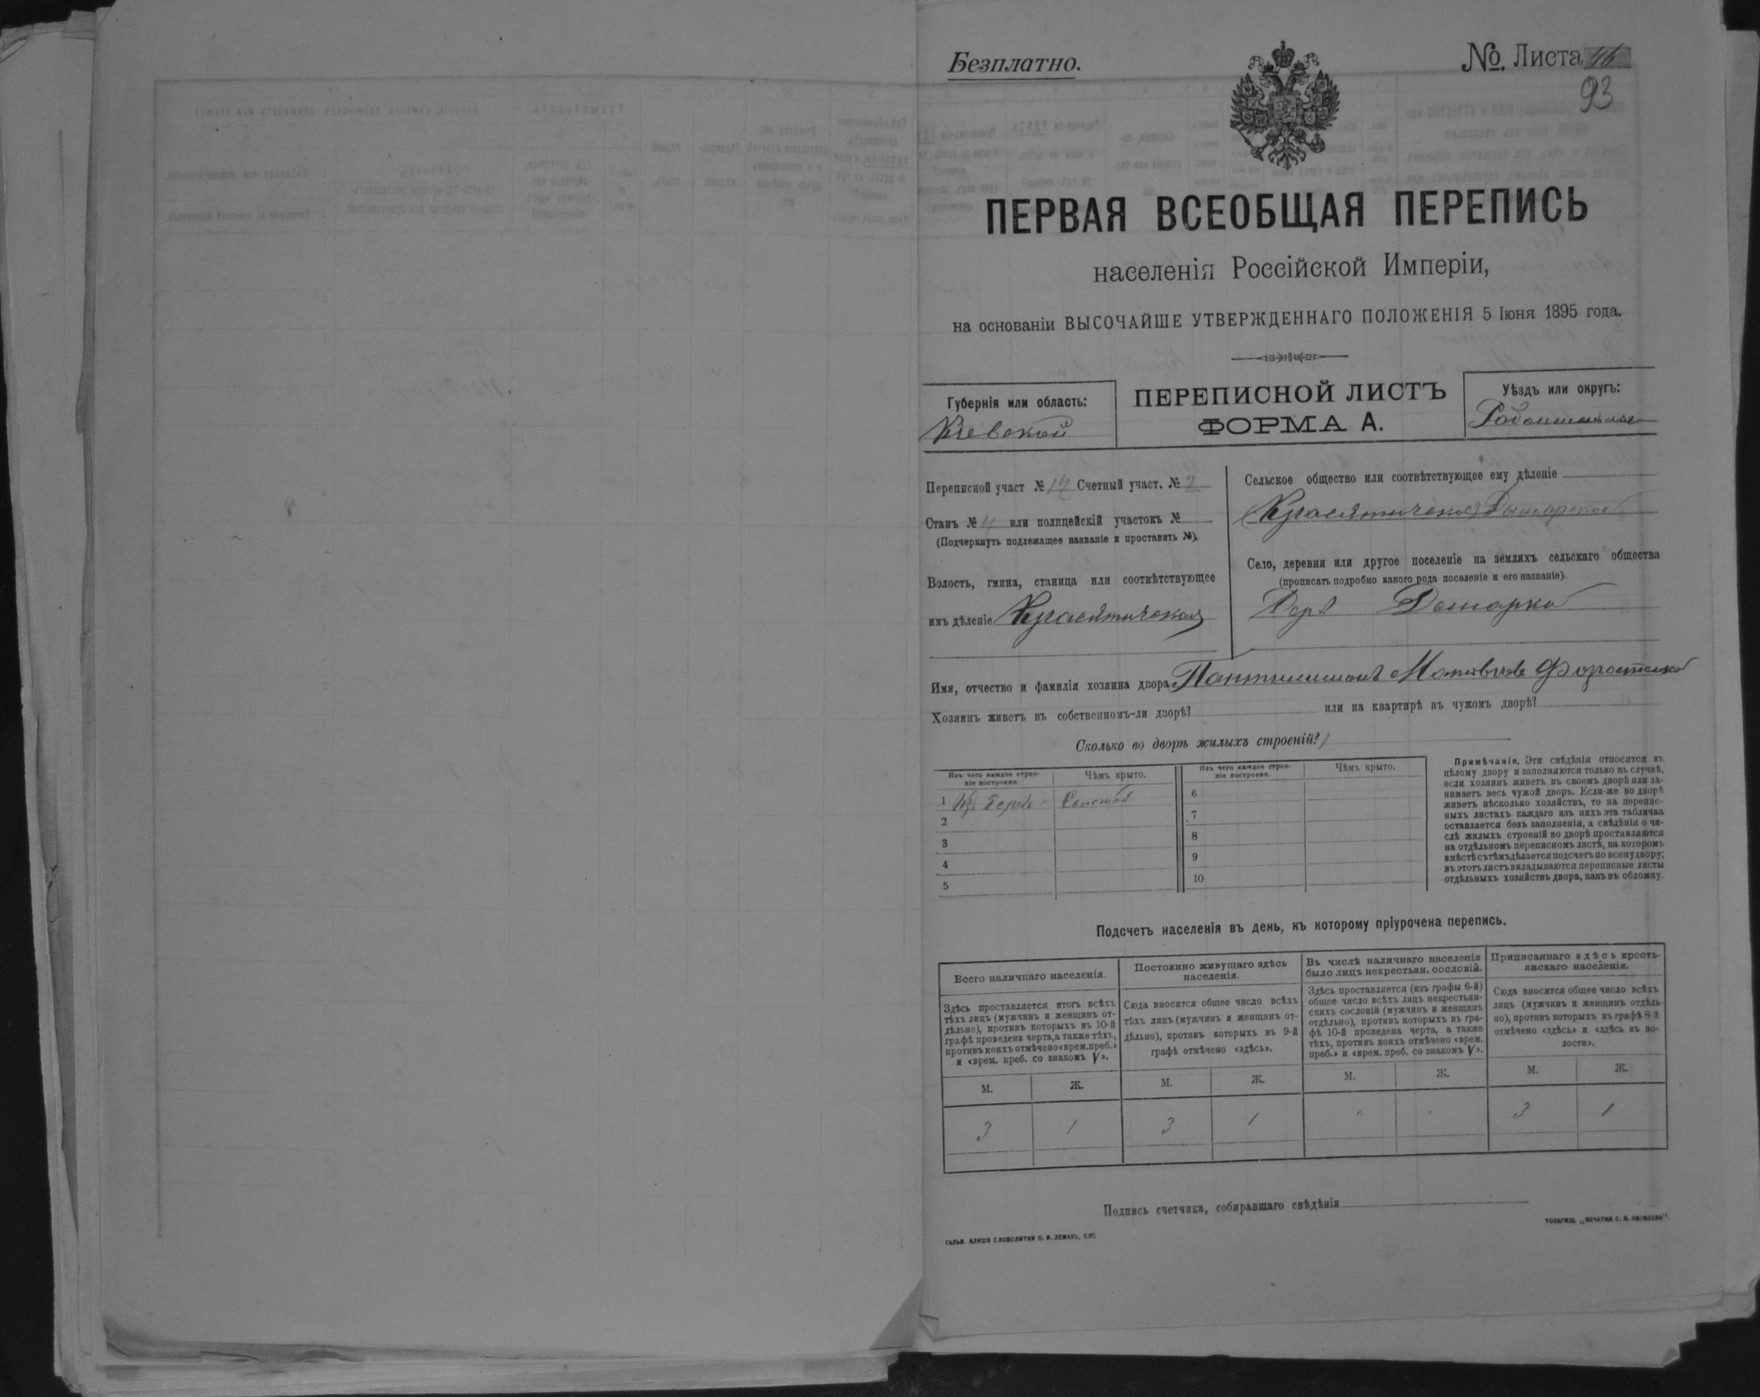 Безплатно.
№ Листа
93
ПЕРВАЯ ВСЕОБЩАЯ ПЕРЕПИСЬ
населенія Россійской Имперіи,
на основаніи ВЫСОЧАЙШЕ УТВЕРЖДЕННАГО ПОЛОЖЕНІЯ 5 Іюня 1895 года.
Губернія или область:
Кіевской
ПЕРЕПИСНОЙ ЛИСТЪ
ФОРМА А.
Уѣздъ или округъ:
Переписной участ № 14 Счетный участ. № 2
Станъ № 4 или полицейскій участокъ №
(Подчеркнуть подлежащее названіе и проставить №).
Волость, гмина, станица или соотвѣтствующее
имъ дѣленіе Красятичская
Сельское общество или соотвѣтствующее ему дѣленіе
Село, деревня или другое поселеніе на земляхъ сельскаго общества
(прописать подробно какого рода поселеніе и его названіе).
Дер
Имя, отчество и фамилія хозяина двора
Хозяинъ живетъ въ собственномъ-ли дворѣ? или на квартирѣ въ чужомъ дворѣ?
Сколько во дворѣ жилыхъ строеній? 1
Изъ чего каждое строе-
ніе построено.
Чѣмъ крыто.
Изъ чего каждое строе-
ніе построено.
Чѣмъ крыто.
1
2
3
4
5
6
7
8
9
10
Примѣчаніе. Эти свѣдѣнія относятся къ
цѣлому двору и заполняются только въ случаѣ,
если хозяинъ живетъ въ своемъ дворѣ или за-
нимаетъ весь чужой дворъ. Если-же во дворѣ
живетъ нѣсколько хозяйствъ, то на перепис-
ныхъ листахъ каждаго изъ нихъ эта табличка
оставляется безъ заполненія, а свѣдѣнія о чи-
слѣ жилыхъ строеній во дворѣ проставляются
на отдѣльномъ переписномъ листѣ, на которомъ
вмѣстѣ съ тѣмъ дѣлается подсчетъ по всему двору;
въ этотъ листъ вкладываются переписные листы
отдѣльныхъ хозяйствъ двора, какъ въ обложку.
Подсчетъ населенія въ день, къ которому пріурочена перепись.
Всего наличнаго населенія.
Здѣсь проставляется итогъ всѣхъ
тѣхъ лицъ (мужчинъ и женщинъ от-
дѣльно), противъ которыхъ въ 10-й
графѣ проведена черта, а также тѣхъ,
противъ коихъ отмѣчено «врем. преб.»
и «врем. преб. со знакомъ V».
Постоянно живущаго здѣсь
населенія.
Сюда вносится общее число всѣхъ
тѣхъ лицъ (мужчинъ и женщинъ от-
дѣльно), противъ которыхъ въ 9-й
графѣ отмѣчено «здѣсь».
Въ числѣ наличнаго населенія
было лицъ некрестьян. сословій.
Здѣсь проставляется (изъ графы 6-й)
общее число всѣхъ лицъ некрестьян-
скихъ сословій (мужчинъ и женщинъ
отдѣльно), противъ которыхъ въ гра-
фѣ 10-й проведена черта, а также
тѣхъ, противъ коихъ отмѣчено «врем.
преб.» и «врем. преб. со знакомъ V».
Приписаннаго здѣсь кресть-
янскаго населенія.
Сюда вносится общее число всѣхъ
лицъ (мужчинъ и женщинъ отдѣль-
но), противъ которыхъ въ графѣ 8-й
отмѣчено «здѣсь» и «здѣсь въ во-
лости».
М. Ж. М. Ж. М. Ж. М. Ж.
3 1 3 1 3 1
Подпись счетчика, собиравшаго свѣдѣнія